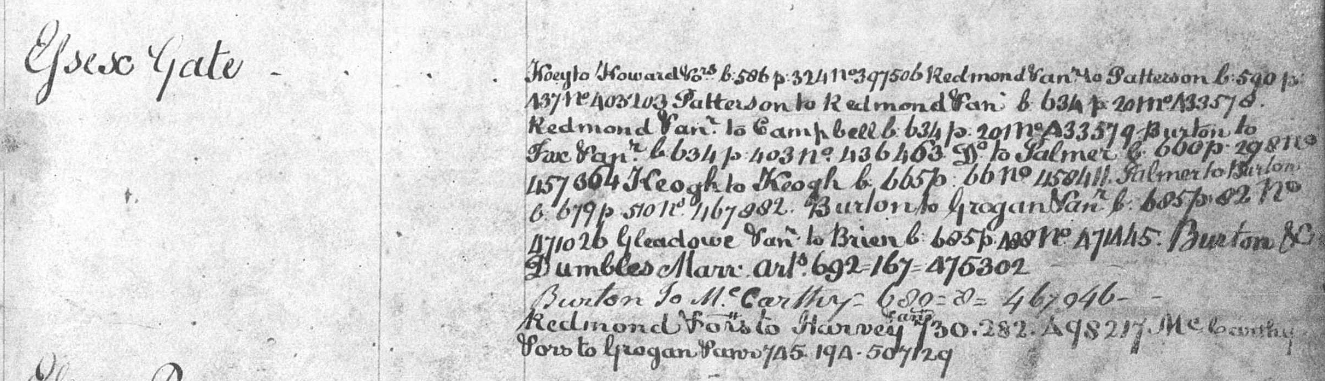 Essex Gate -
Hoey to Howard & ors b. 586 p. 324 no 397506 Redmond & anr to Patterson b. 590 p.
437 no 403203 Patterson to Redmond & anr b. 634 p. 201 no 433578.
Redmond & anr to Campbell b. 634 p. 201 no 433579 Burton to
& anr b. 634 p. 403 no. 436463 Do to Palmer b. 660 p. 298 no
457364 Keogh to Keogh b. 665 p. 66 no 458411. Palmer to Burton
b. 679 p. 510 no. 467882. Burton to Grogan & anr b. 685 p. 82 no
471026 Gleadowe & anr to Brien b. 685 p. 188 no 471445. Burton &
Dumbles Marr. Arts. 692=167=475302
Burton To McCarthy = 680=8= 467946 -
Redmond & ors to Harvey & anr 730. 282. 498217 McCarthy
& ors to Grogan & anr 745. 194. 507129